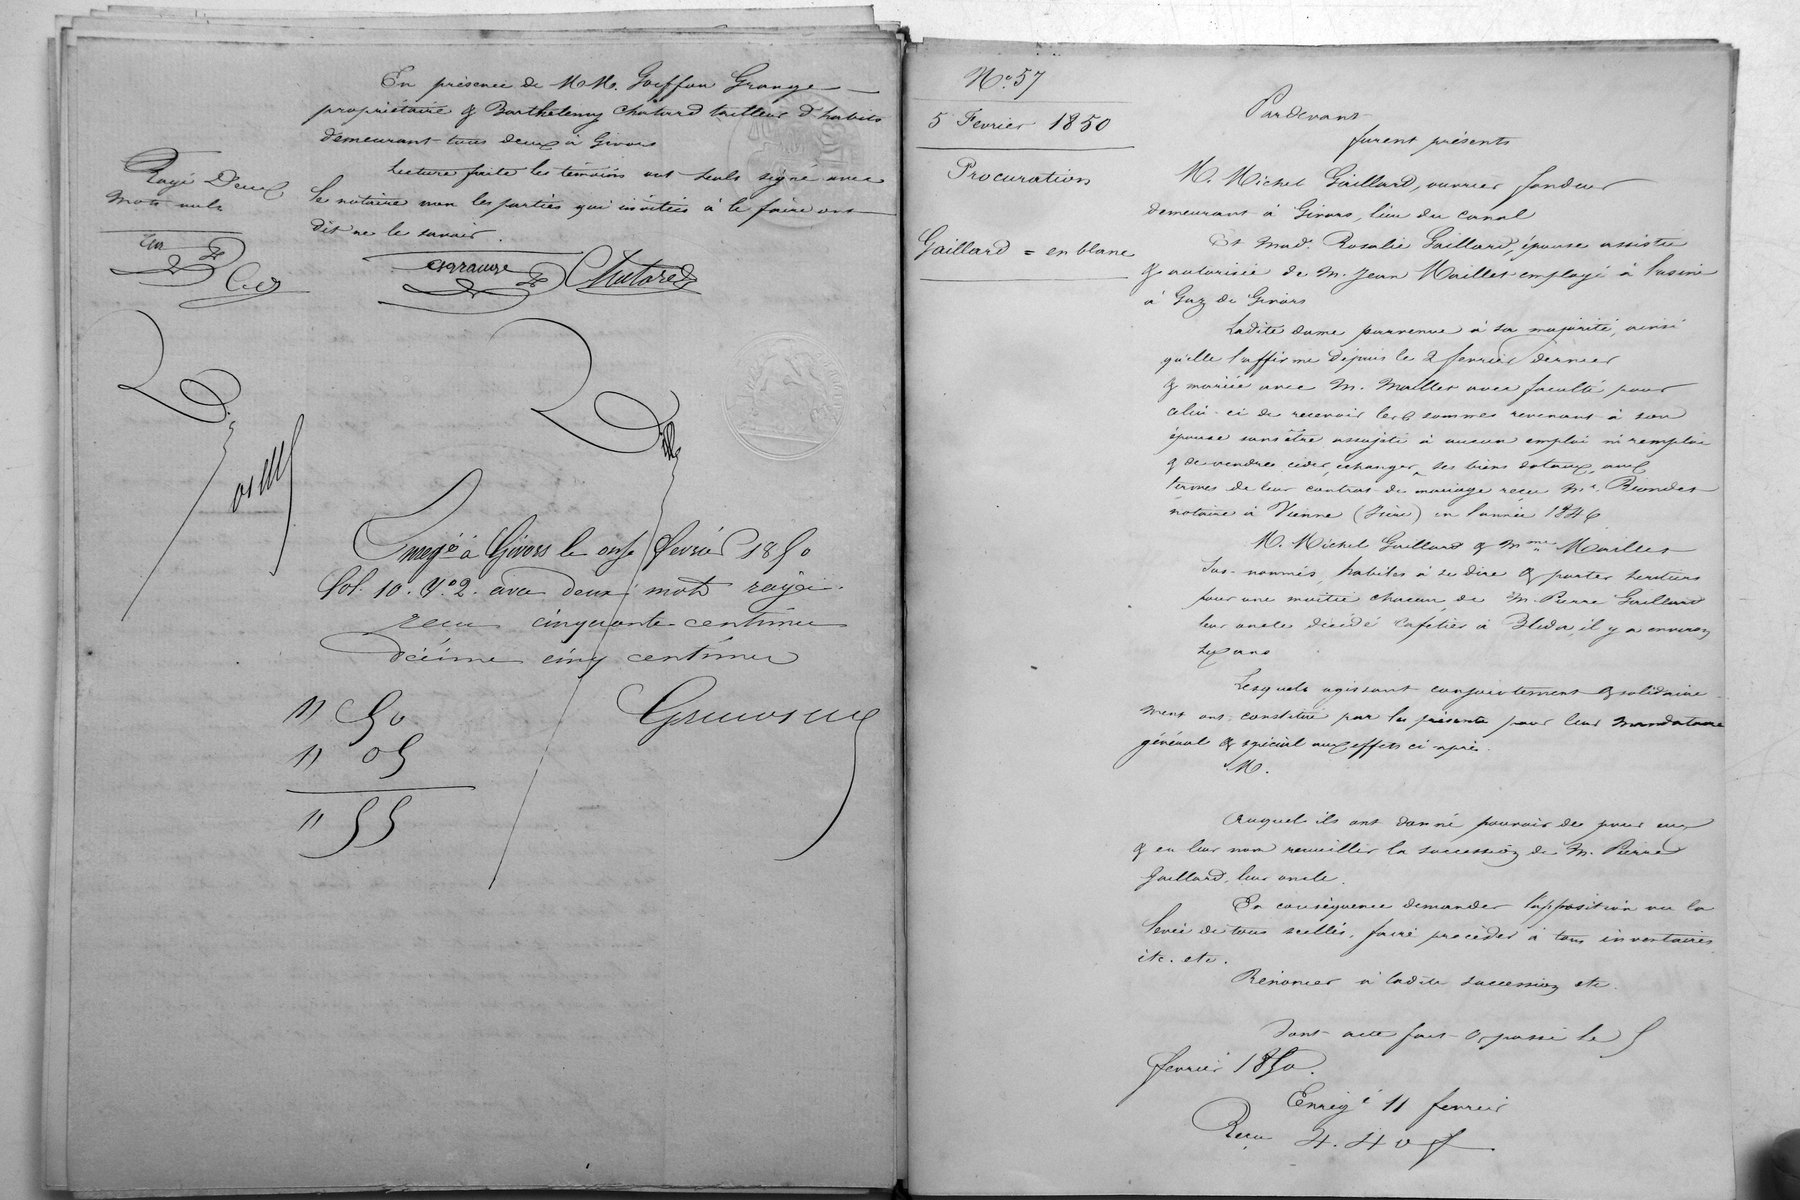 En présence de MM. Goiffon Grange
propriétaire & Barthelemy Chatard tailleur d'habits
demeurant tous deux à Givors
Lecture faite les témoins ont seuls signé avec
le notaire non les parties qui invitées à le faire ont
dit ne le savoir.
Rayé Deux
mots nuls
ggrange Chatard
Enregé à Givors le onze février 1850
fol. 10. Vo 2. avec deux mots rayés.
reçu cinquante centimes
décime cinq centimes
" 50
" 05
" 55
No. 57
5 Fevrier 1850
Procuration
Gaillard = en blanc
Pardevant
furent présents
M. Michel Gaillard, ouvrier fondeur
demeurant à Givors, lieu du canal
Et Mad. Rosalie Gaillard, épouse assistée
& autorisée de M. Jean Maillet employé à l'usine
à Gaz de Givors
Ladite dame parvenue à sa majorité, ainsi
qu'elle l'affirme depuis le 2 fevrier dernier
& mariée avec M. Maillet avec faculté pour
celui-ci de recevoir les sommes revenant à son
épouse sans être assujeti à aucun emploi ni remploi
& de vendre céder, échanger, ses biens dotaux, aux
termes de leur contrat de mariage reçu Me. Rondet
notaire à Vienne (Isère) en l'année 1846
M. Michel Gaillard & Mme Maillet
sus-nommés, habiles à se dire & porter heritiers
pour une moitié chacun de M. Pierre Gaillard
leur oncle décédé cafétier à Blida, il y a environ
six ans
Lesquels agissant conjointement & solidaire
ment ont constitué par les présentes pour leur mandataire
général & spécial aux effets ci-après.
M.
Auquel ils ont donné pouvoir de pour eux
& en leur nom recueillir la succession de M. Pierre
Gaillard, leur oncle.
En conséquence demander l'apposition ou la
levée de tous scellés, faire procéder à tous inventaires
etc. etc.
Rénoncer à ladite succession etc.
Dont acte fait & passé le 5
fevrier 1850.
Enregé 11 fevrier
Reçu 4.40 f